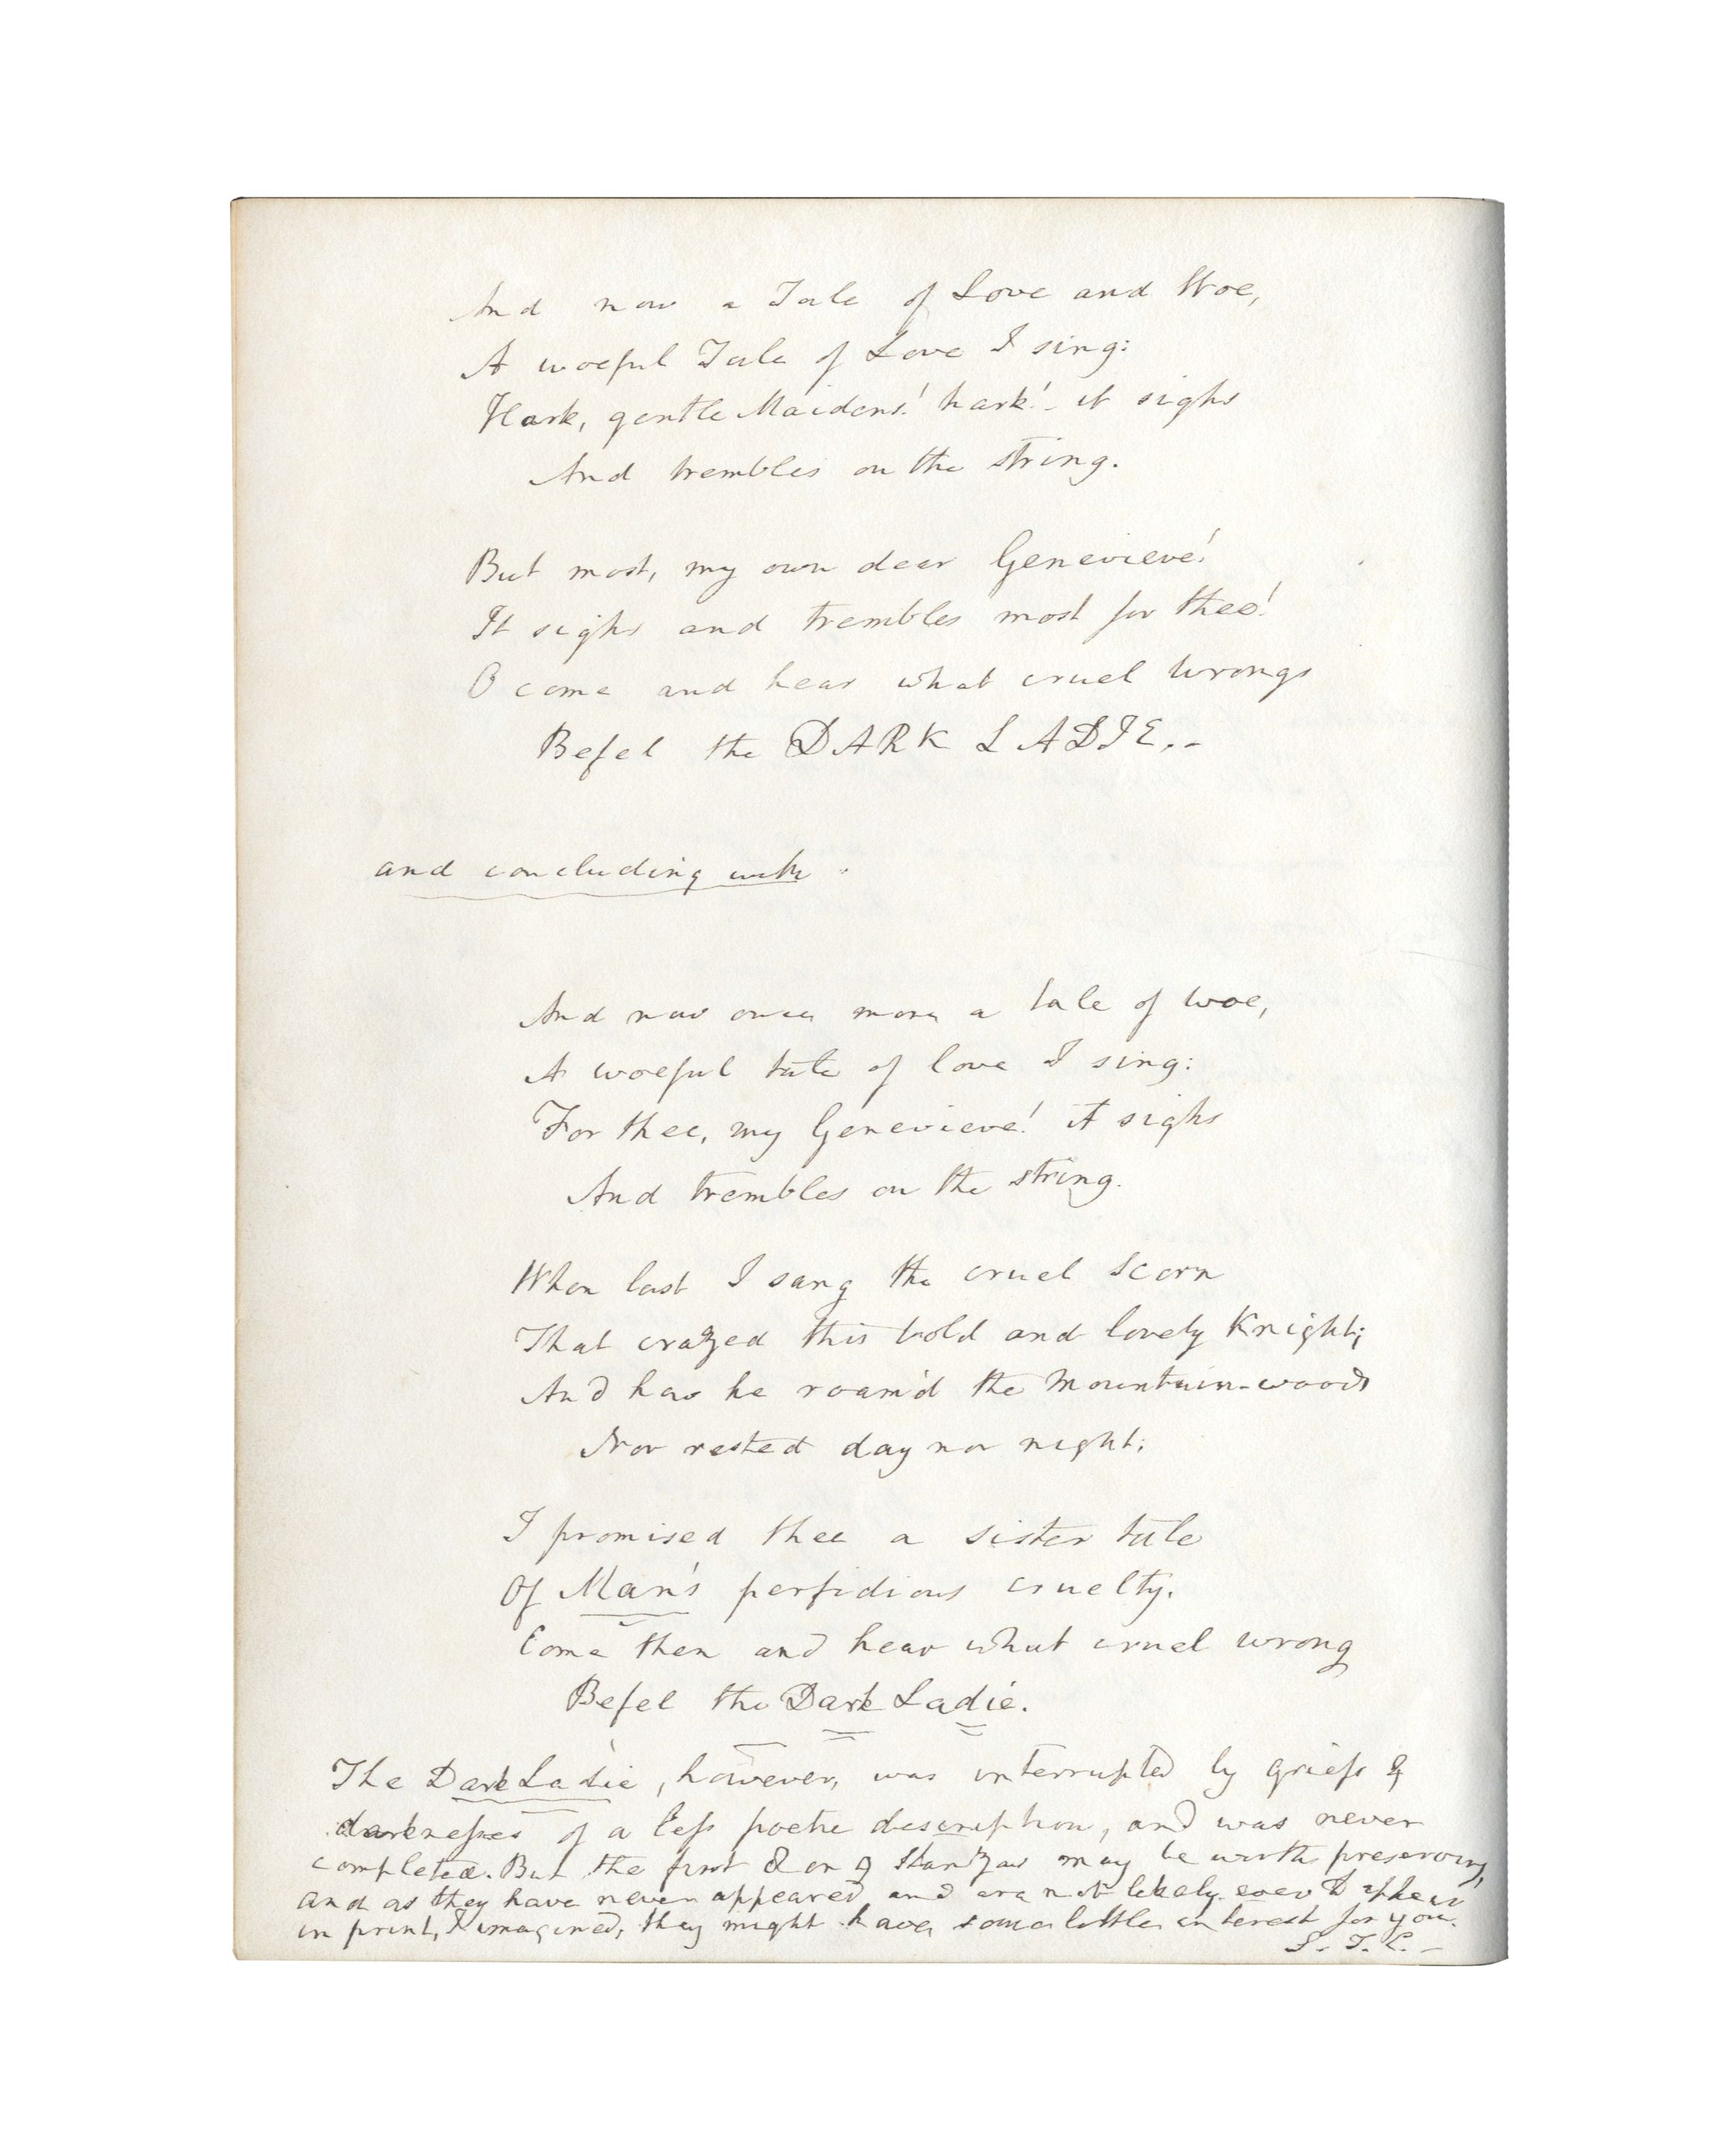 And now a Tale of Love and Woe,
A woeful Tale of Love I sing:
Hark, gentle Maidens! hark! - it sighs
And trembles on the string.
But most, my own dear Genevieve!
It sighs and trembles most for thee!
O come and hear what cruel wrongs
Befel the DARK LADIE. -
and concluding with :
And now once more a tale of woe,
A woeful tale of love I sing:
For thee, my Genevieve! it sighs
And trembles on the string.
When last I sang the cruel Scorn
That crazed this bold and lovely Knight;
And how he roam'd the Mountain-woods
Nor rested day nor night;
I promised thee a sister tale
Of Man's perfidious cruelty.
Come then and hear what cruel wrong
Befel the Dark Ladie.
The Dark Ladie, however, was interrupted by griefs &
darknesses of a less poetic description, and was never
completed. But the first 8 or 9 stanzas may be worth preserving,
and as they have never appeared and are not likely ever to appear
in print, I imagined, they might have some little interest for you.
S. T. C. -